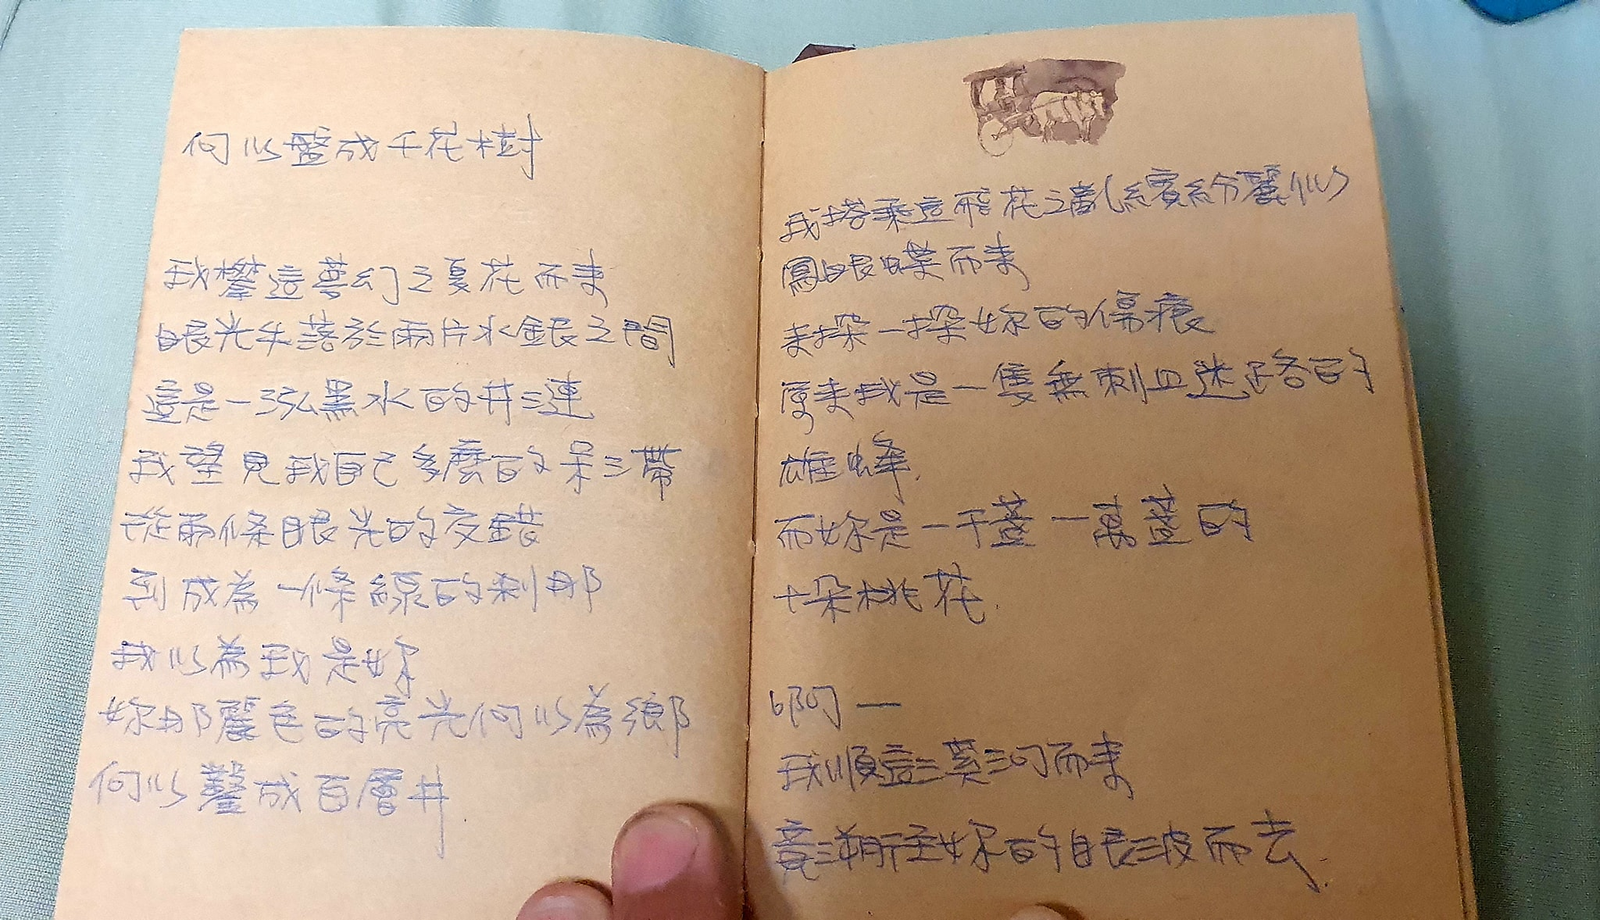 何以盤成千花樹
我攀這夢幻之夏花而來
眼光失落於兩片水銀之間
這是一泓黑水的井漣
我望見我自己多麼的呆滯
從兩條眼光的交錯
到成為一條線的剎那
我以為我是妳
妳那麗色的亮光何以為鄉
何以鑿成百層井
我搭乘這飛花之亂繽紛麗似
鳳眼蝶而來
來探一探妳的傷痕
原來我是一隻無刺且迷路的
雄蜂.
而妳是一千盞一萬盞的
十朵桃花.
啊—
我順這溪河而來
竟溯至妳的眼波而去.